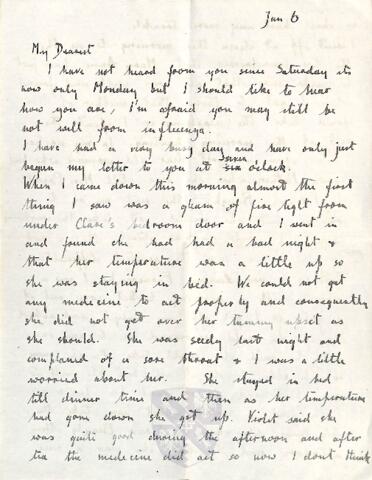 Jan 6
My Dearest
I have not heard from you since Saturday its
now only Monday but I should like to hear
how you are, I'm afraid you may still be
not well from influenza.
I have had a very busy day and have only just
begun my letter to you at six seven o'clock.
When I came down this morning almost the first
thing I saw was a gleam of fire light from
under Clare's bedroom door and I went in
and found she had had a bad night &
that her temperature was a little up so
she was staying in bed. We could not get
any medicine to act properly and consequently
she did not get over her tummy upset as
she should. She was seedy last night and
complained of a sore throat & I was a little
worried about her. She stayed in bed
till dinner time and then as her temperature
had gone down she got up. Violet said she
was quite good during the afternoon and after
tea the medicine did act so now I dont think